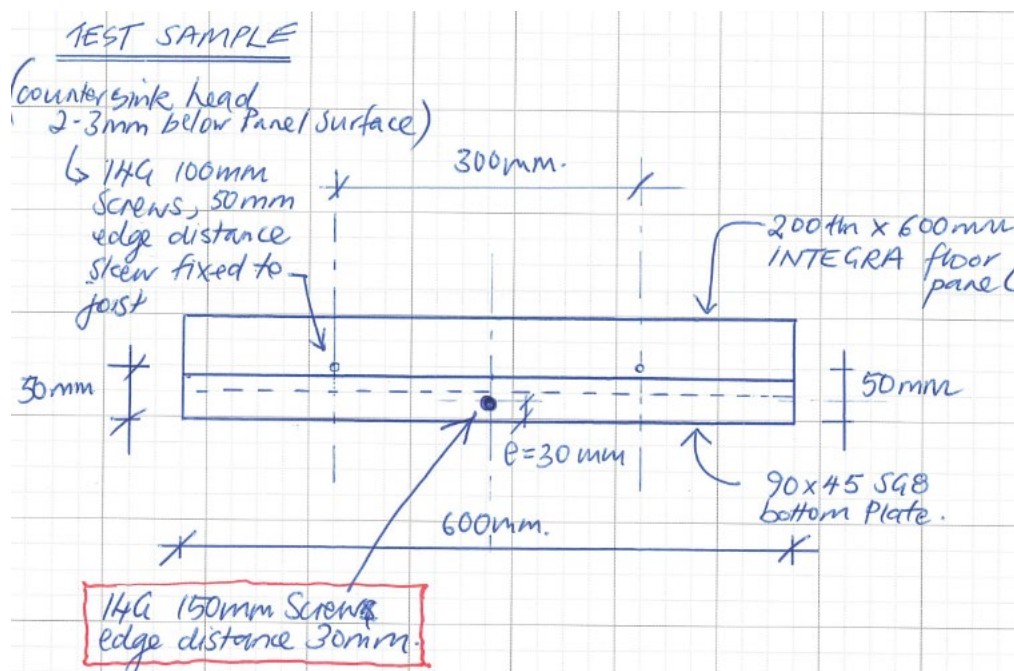 TEST SAMPLE
(countersink head
2-3mm below Panel surface)
↳ 14G 100mm
Screws, 50mm
edge distance
skew fixed to
joist
300mm.
200thn x 600mm
INTEGRA floor
panel
50mm
50mm
e=30mm
90x45 SG8
bottom Plate.
600mm.
14G 150mm Screws
edge distance 30mm.